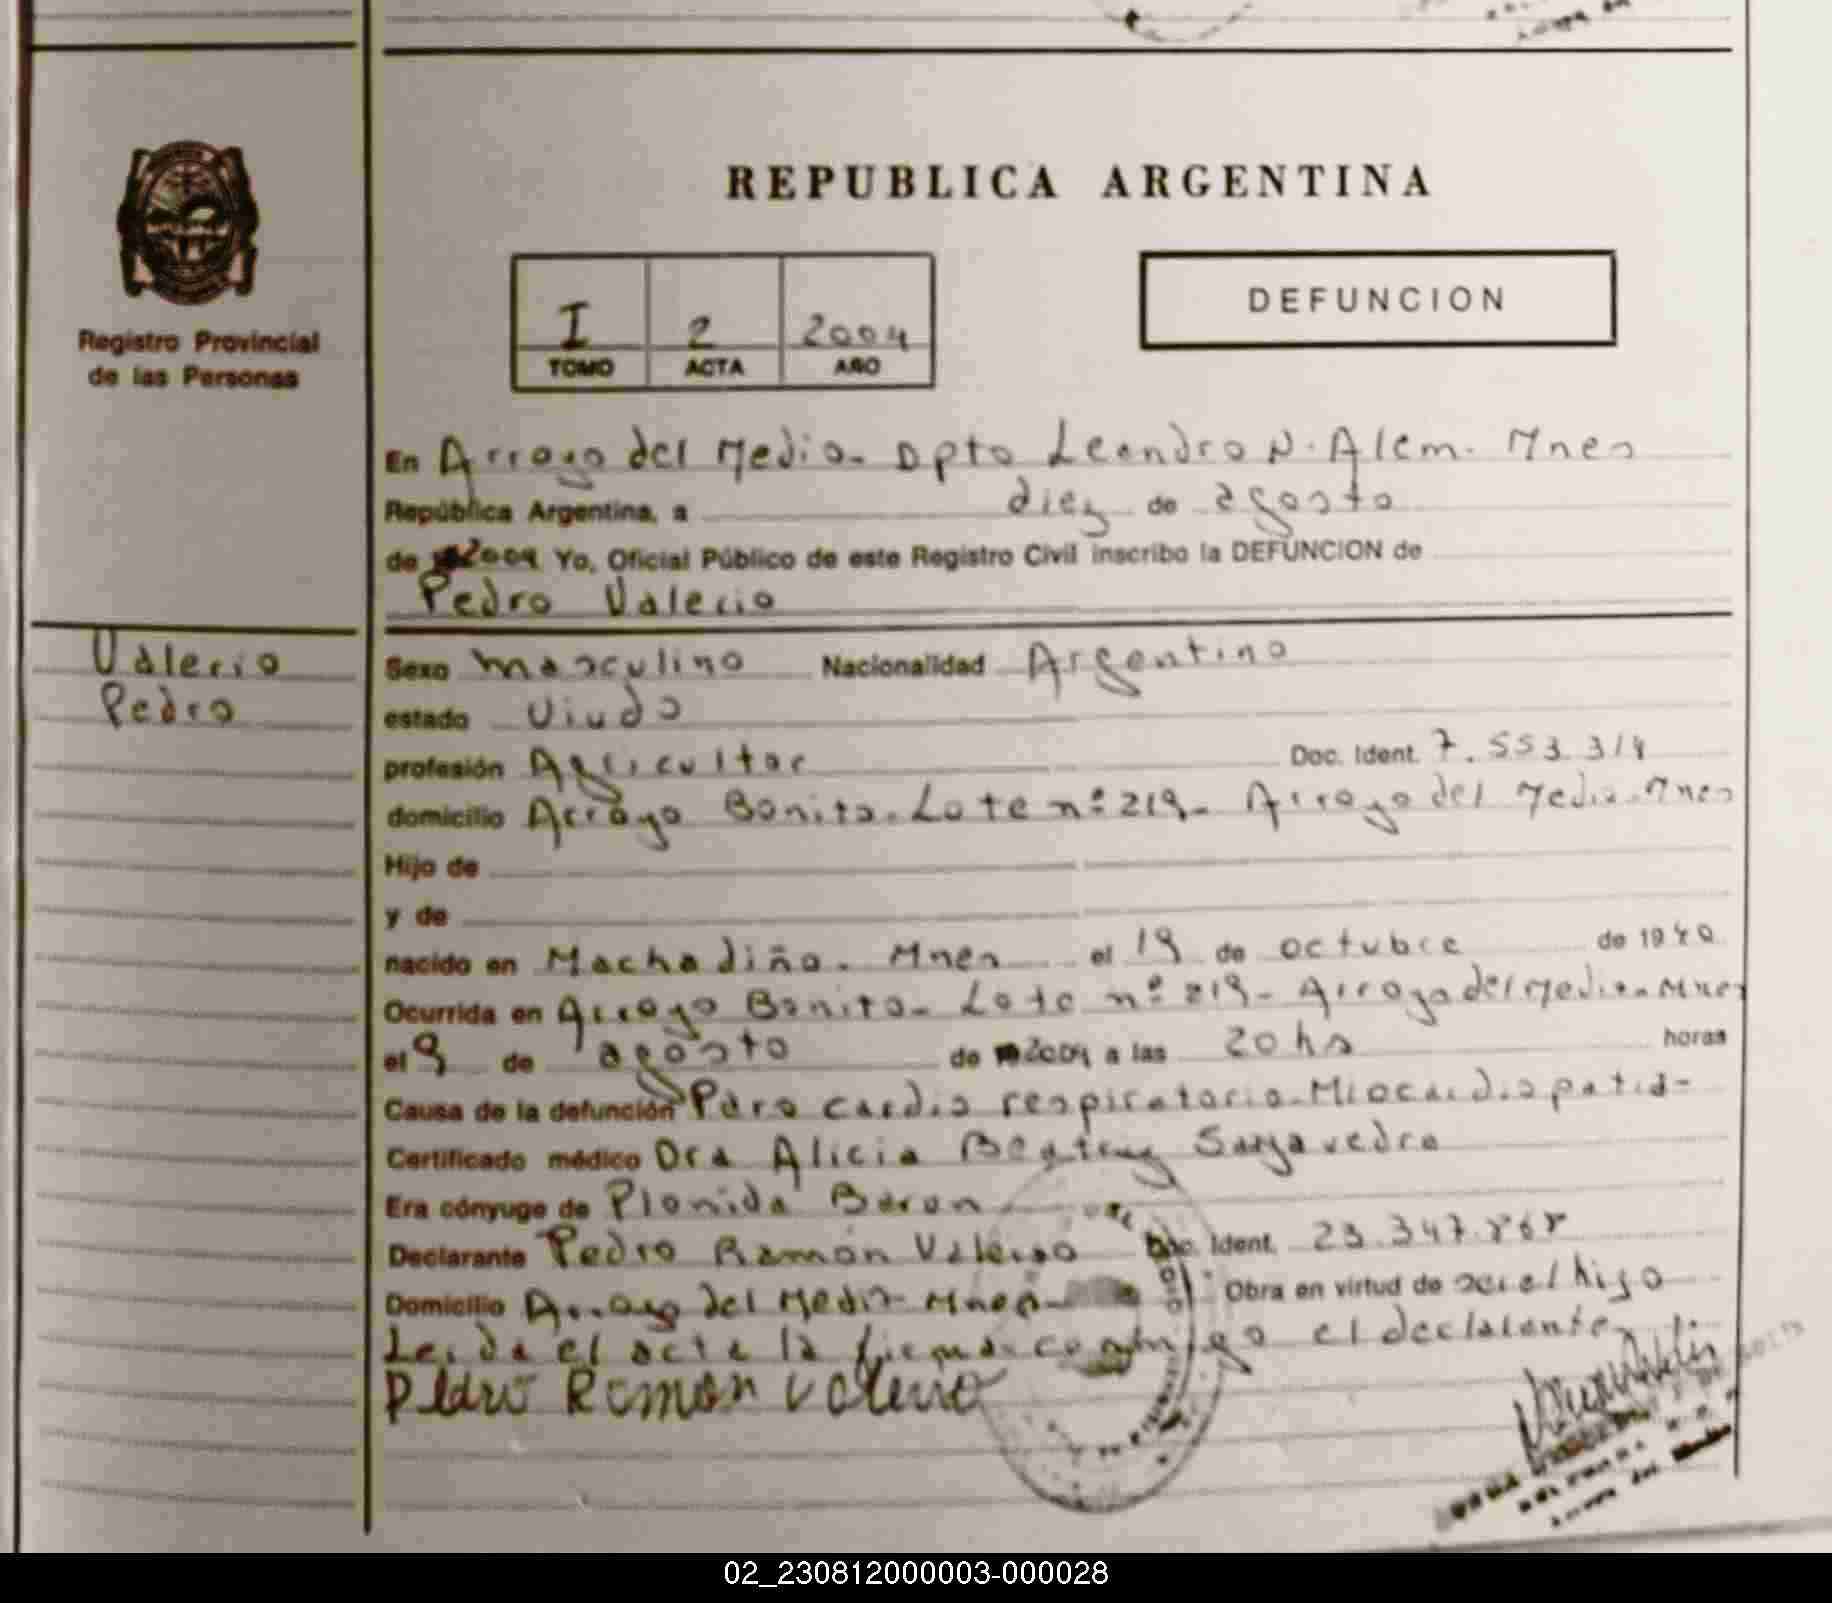 REPUBLICA ARGENTINA
Registro Provincial
de las Personas
I 2 2004
TOMO ACTA AÑO
DEFUNCION
En Arroyo del Medio - Dpto Leandro N. Alem - Mnes
República Argentina, a diez de agosto
de 2004 Yo, Oficial Público de este Registro Civil inscribo la DEFUNCION de
Pedro Valerio
Valerio
Pedro
Sexo masculino Nacionalidad Argentino
estado Viudo
profesión Agricultor Doc. Ident. 7.553.314
domicilio Arroyo Bonito - Lote nº 219 - Arroyo del Medio - Mnes
Hijo de
y de
nacido en Machadiño - Mnes el 19 de octubre de 1940
Ocurrida en Arroyo Bonito - Lote nº 219 - Arroyo del Medio - Mnes
el 9 de agosto de 2004 a las 20 hs horas
Causa de la defunción Paro cardio respiratorio - Miocardiopatia -
Certificado médico Dra Alicia Beatriz Sayavedra
Era cónyuge de Plonida Baron
Declarante Pedro Ramón Valerio Doc. Ident. 23.347.868
Domicilio Arroyo del Medio - Mnes - Obra en virtud de ser el hijo
Leida el acta la firma conmigo el declarante
Pedro Ramon Valerio
02_230812000003-000028